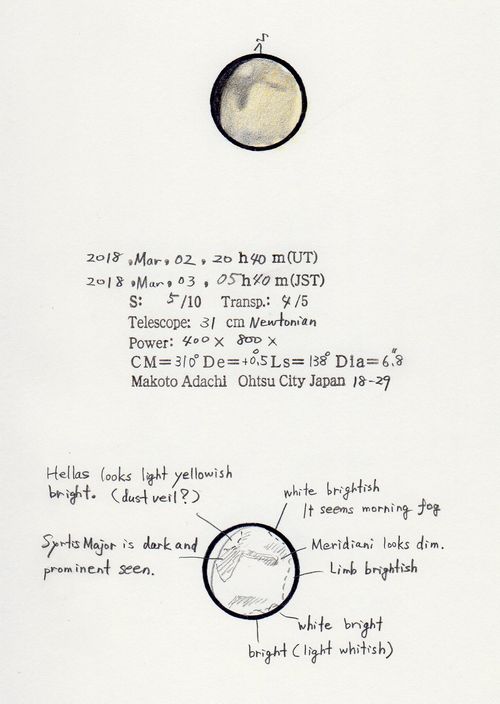 S
2018 . Mar. 02 . 20 h 40 m (UT)
2018 . Mar. 03 . 05 h 40 m (JST)
S: 5/10 Transp.: 4/5
Telescope: 31 cm Newtonian
Power: 400 × 800 ×
CM=310° De=+0.°5 Ls=138° Dia=6."8
Makoto Adachi Ohtsu City Japan 18-29
Hellas looks light yellowish
bright. (dust veil?)
white brightish
It seems morning fog
Syrtis Major is dark and
prominent seen.
Meridiani looks dim.
Limb brightish
white bright
bright (light whitish)